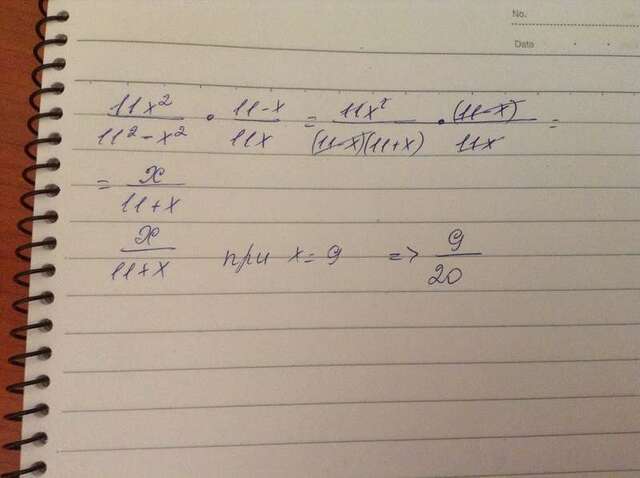 No.
Data
11x²/(11²-x²) · (11-x)/(11x) = 11x²/((11-x)(11+x)) · (11-x)/(11x) =
= x/(11+x)
x/(11+x) при x=9 => 9/20